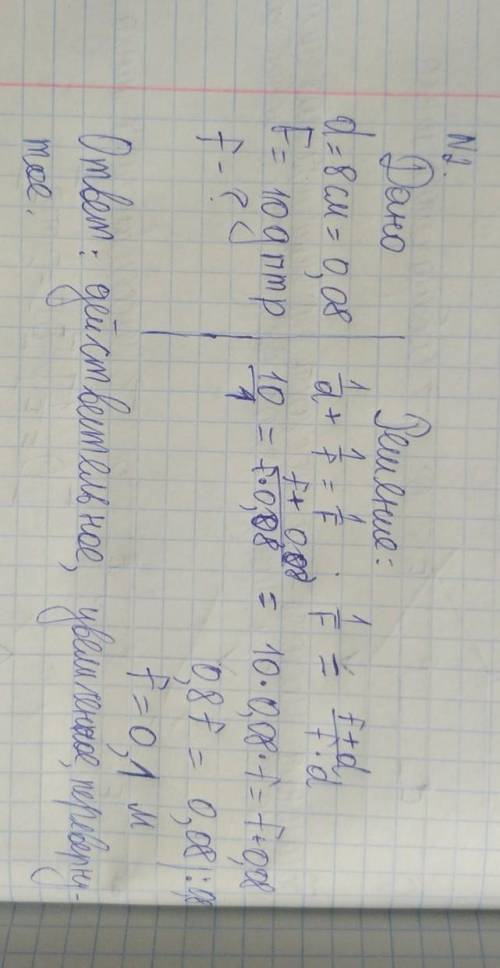 N2.
Дано
d = 8 см = 0,08
F = 10 дптр
f - ?
Решение:
1/d + 1/f = 1/F . 1/F = f+d/f·d
10/1 = f+0,08/f·0,08 = 10·0,08·f = f+0,08
0,8f = 0,08
f = 0,1 м
Ответ: действительное, увеличенное, переверну-
тое.